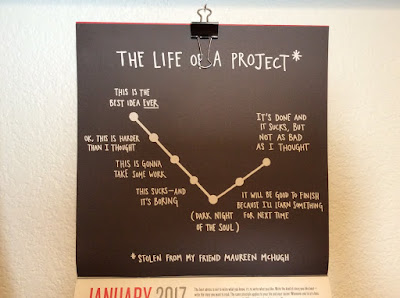 THE LIFE OF A PROJECT*
THIS IS THE
BEST IDEA EVER
OK, THIS IS HARDER
THAN I THOUGHT
THIS IS GONNA
TAKE SOME WORK
THIS SUCKS—AND
IT'S BORING
(DARK NIGHT
OF THE SOUL)
IT WILL BE GOOD TO FINISH
BECAUSE I'LL LEARN SOMETHING
FOR NEXT TIME
IT'S DONE AND
IT SUCKS, BUT
NOT AS BAD
AS I THOUGHT
*STOLEN FROM MY FRIEND MAUREEN MCHUGH
JANUARY 2017